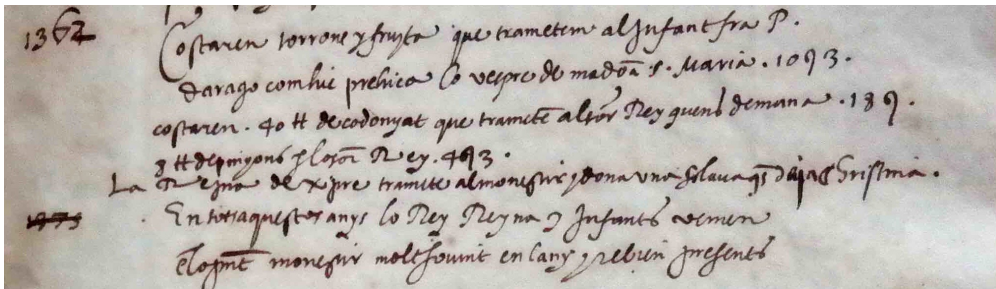 1362 Costaren torrons y fruyta que trametem al Infant fra P.
darago com hic prehica lo vespre de madoã s. Maria. 10 s 3.
costaren. 40 tt de codonyat que trametẽ al sõr Rey quens demana. 18 s.
8 tt de pinyons p lo sor Rey. 4 s 3.
La Reyna de xipre tramete al monestir y dona una sclava qs deya Christina.
1375 En tots aquestos anys lo Rey Reyna y Infants venien
e lo pnt monestir molt sovint en lany y rebien presents